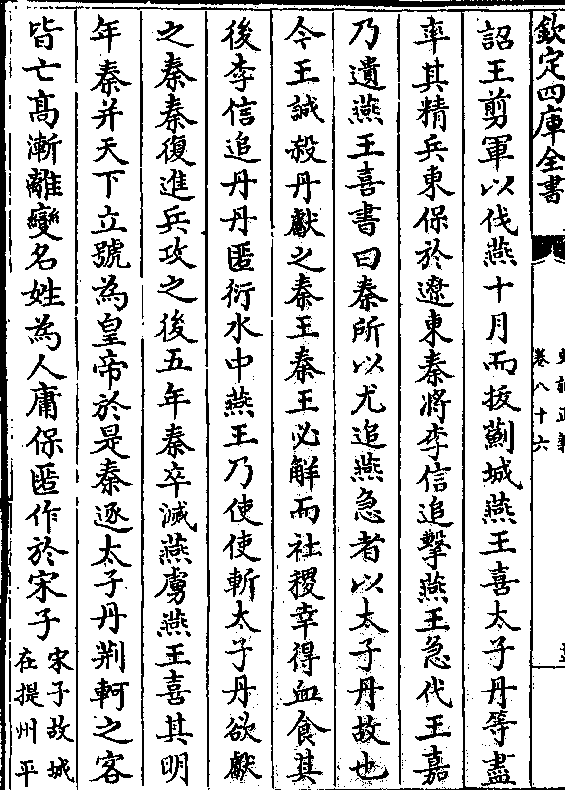 欽定四庫全書
卷八十六
詔王剪軍以伐燕十月而拔薊城燕王喜太子丹等盡
率其精兵東保於遼東秦將李信追擊燕王急代王嘉
乃遺燕王喜書曰秦所以尤追燕急者以太子丹故也
今王誠殺丹獻之秦王秦王必解而社稷幸得血食其
後李信追丹丹匿衍水中燕王乃使使斬太子丹欲獻
之秦秦復進兵攻之後五年秦卒滅燕虜燕王喜其明
年秦并天下立號為皇帝於是秦逐太子丹荆軻之客
皆亡高漸離變名姓為人庸保匿作於宋子
宋子故城
在提州平